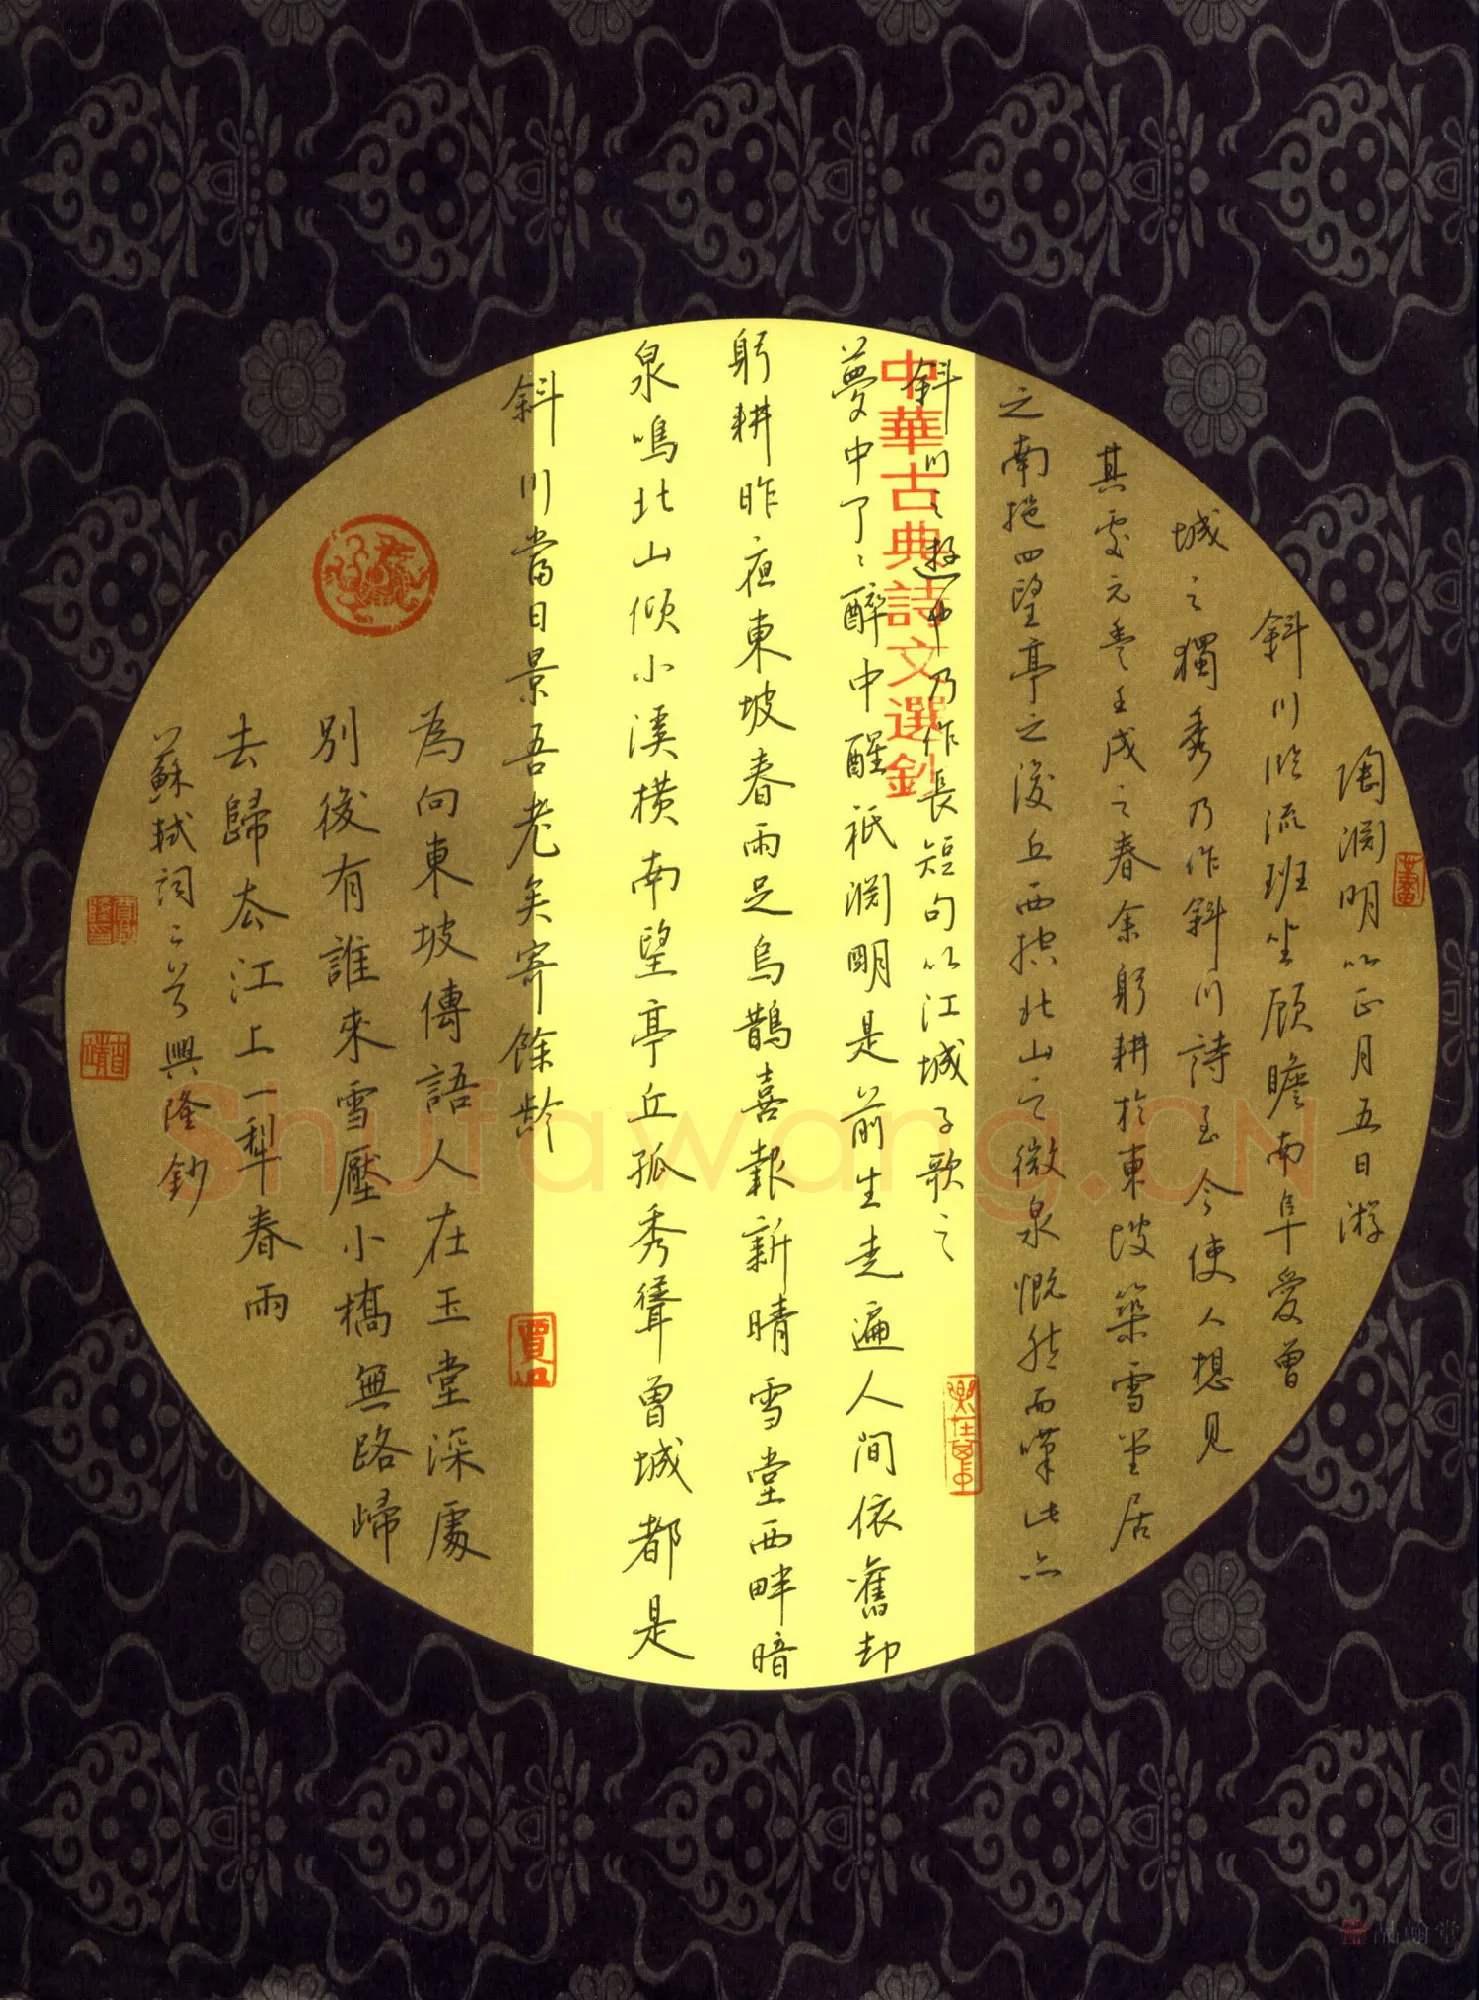 陶淵明以正月五日游
斜川臨流班坐顧瞻南阜愛曾
城之獨秀乃作斜川詩至今使人想見
其處元豐壬戌之春余躬耕於東坡築雪堂居
之南挹四望亭之後丘西控北山之微泉慨然而嘆此亦
斜川之遊也乃作長短句以江城子歌之
中華古典詩文選鈔
夢中了了醉中醒祇淵明是前生走遍人間依舊却
躬耕昨夜東坡春雨足烏鵲喜報新晴雪堂西畔暗
泉鳴北山傾小溪橫南望亭丘孤秀聳曾城都是
斜川當日景吾老矣寄餘齡
為向東坡傳語人在玉堂深處
別後有誰來雪壓小橋無路歸
去歸去江上一犁春雨
蘇軾詞二首興隆鈔
Shufawang.CN
品翰堂